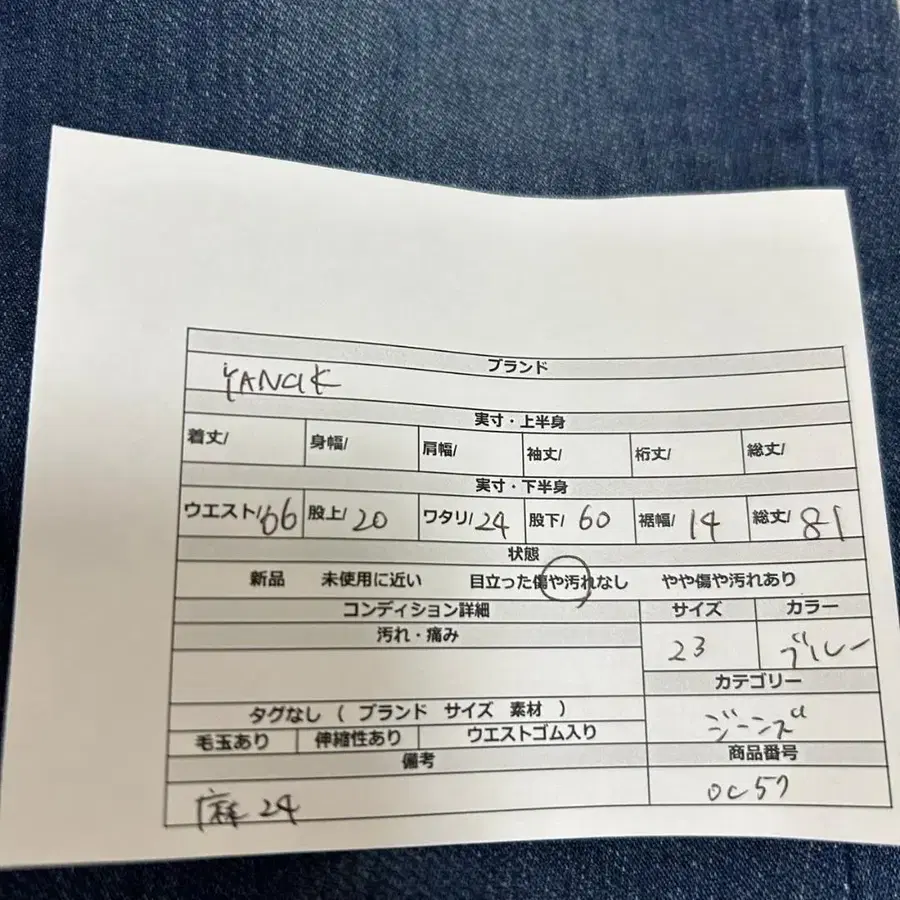 ブランド
YANUK
実寸・上半身
着丈/ 身幅/ 肩幅/ 袖丈/ 裄丈/ 総丈/
実寸・下半身
ウエスト/66 股上/20 ワタリ/24 股下/60 裾幅/14 総丈/81
状態
新品 未使用に近い 目立った傷や汚れなし やや傷や汚れあり
コンディション詳細 サイズ カラー
汚れ・痛み
23 ブルー
カテゴリー
タグなし ( ブランド サイズ 素材 )
ジーンズ
毛玉あり 伸縮性あり ウエストゴム入り
備考 商品番号
麻24 oc57